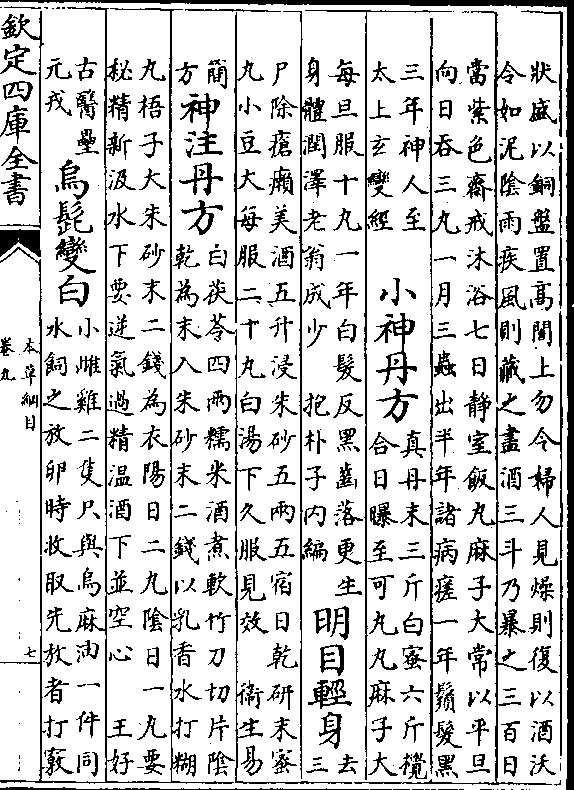 狀盛以銅盤置髙閣上勿令婦人見燥則復以酒沃
令如泥隂雨疾風則藏之盡酒三斗乃暴之三百日
當紫色齋戒沐浴七日靜室飯丸麻子大常以平旦
向日吞三丸一月三蟲出半年諸病瘥一年鬚髮黑
三年神人至
太上玄變經
小神丹方
真丹末三斤白蜜六斤攪
合日曝至可丸丸麻子大
每旦服十丸一年白髮反黑齒落更生
身體潤澤老翁成少 抱朴子内編
明目輕身
去
三
尸除瘡癩美酒五升浸朱砂五兩五宿日乾研末蜜
丸小豆大每服二十丸白湯下久服見效 衛生易
簡
方
神注丹方
白茯苓四兩糯米酒煮軟竹刀切片隂
乾為末入朱砂末二錢以乳香水打糊
丸梧子大朱砂末二錢為衣陽日二丸隂日一丸要
秘精新汲水下要逆氣過精温酒下並空心 王好
古醫壘
元戎
烏髭變白
小雌雞二隻只與烏麻油一件同
水飼之放卵時收取先放者打竅
欽定四庫全書
本草綱目
卷九
七